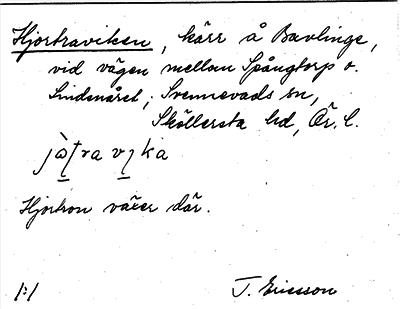 Hjortraviken, kärr å Bavlinge,
vid vägen mellan Spångtorp o.
Lindenäret; Svennevads sn,
Sköllersta hd, Ör. l.
Hjortron växer där.
1:1 J. Ericsson